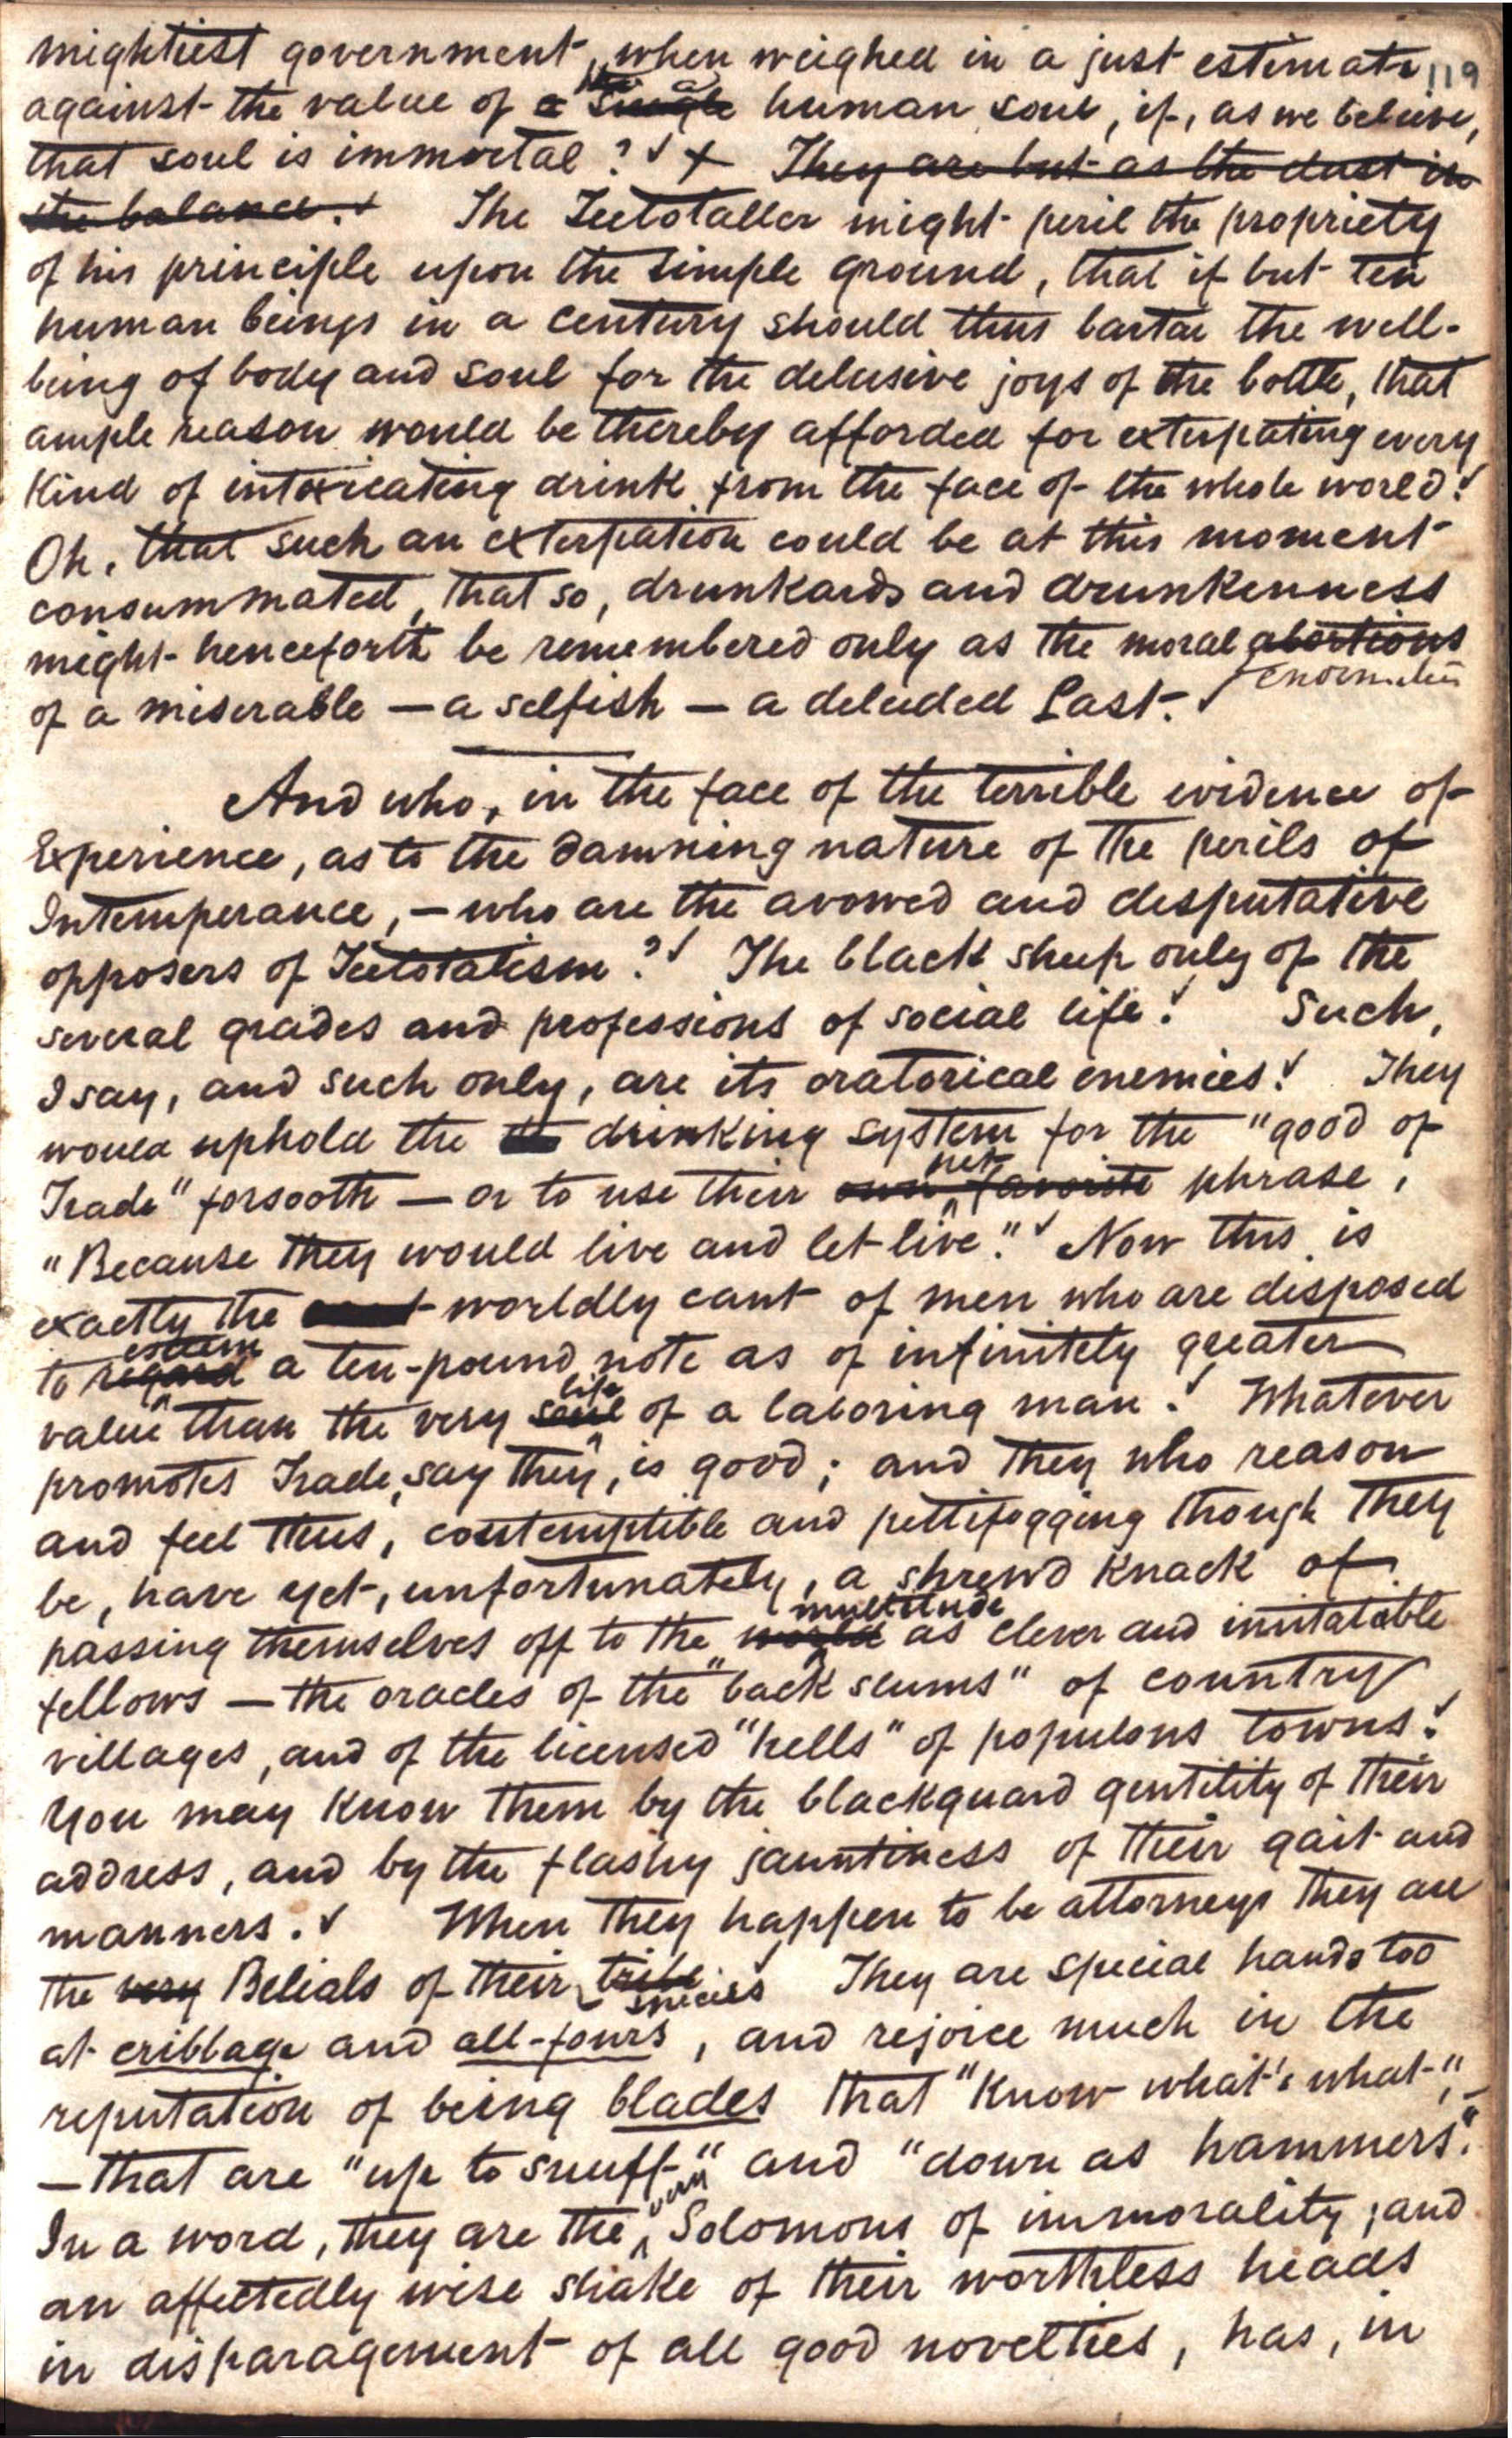 mightiest government, when weighed in a just estimate, 119
against the value of a single the a human soul, if, as we believe,
that soul is immortal? ✓ + They are but as the dust in
the balance. ✓ The Teetotaller might peril the propriety
of his principle upon the simple ground, that if but ten
human beings in a century should thus bartar the well-
being of body and soul for the delusive joys of the bottle, that
ample reason would be thereby afforded for exterpating every
kind of intoxicating drink from the face of the whole world!
Oh, that such an exterpation could be at this moment
consummated, that so, drunkards and drunkenness
might henceforth be remembered only as the moral abortions
enormities
of a miserable — a selfish — a deluded Past. ✓
And who, in the face of the terrible evidence of
Experience, as to the damning nature of the perils of
Intemperance, — who are the avowed and desputative
opposers of Teetotalism? ✓ The black sheep only of the
several grades and professions of social life! Such,
I say, and such only, are its oratorical enemies! They
would uphold the drinking system for the "good of
pet
Trade" forsooth — or to use their own ^ favorite phrase,
"Because they would live and let live." ✓ Now this is
exactly the cant worldly cant of men who are disposed
esteem
to regard a ten-pound note as of infinitely greater
life
value than the very soul of a laboring man! Whatever
promotes Trade, say they, is good; and they who reason
and feel thus, contemptible and pettifogging though they
be, have yet, unfortunately, a shrewd knack of
multitude
passing themselves off to the world as clever and imitatable
fellows — the oracles of the "back slums" of country
villages, and of the licensed "hells" of populous towns!
You may know them by the blackguard gentility of their
address, and by the flashy jauntiness of their gait and
manners. ✓ When they happen to be attorneys they are
the very Belials of their tribe species ✓ They are special hands too
at cribbage and all-fours, and rejoice much in the
reputation of being blades that "know what's what", —
— that are "up to snuff" and "down as hammers".
very
In a word, they are the ^ Solomons of immorality; and
an affectedly wise shake of their worthless heads
in disparagement of all good novelties, has, in